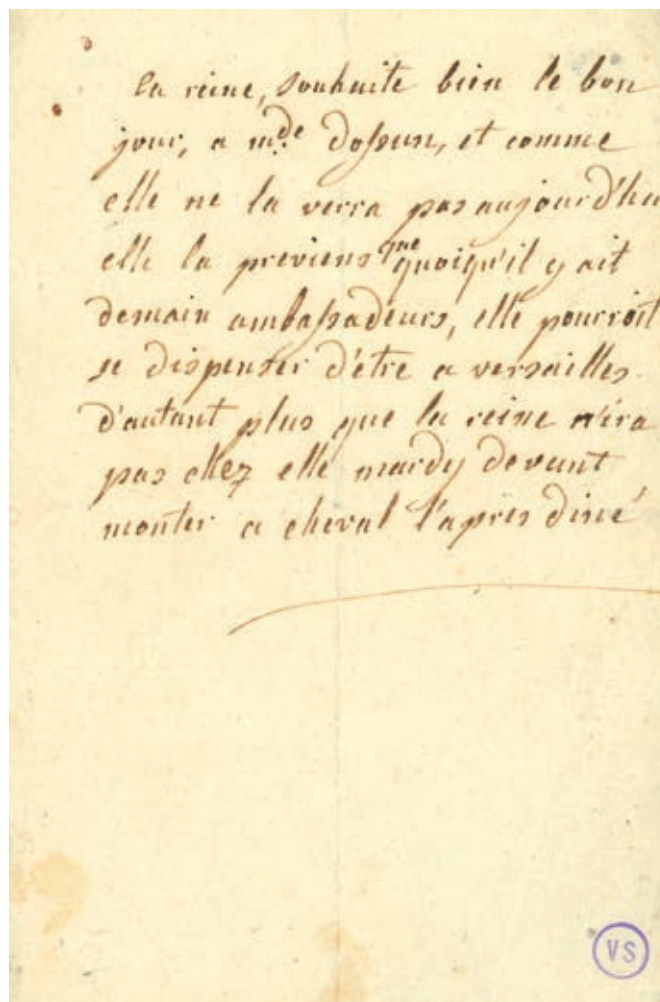 la reine, souhaite bien le bon
jour, a mde dossun, et comme
elle ne la verra pas aujourd'hu
elle la previens que quoiqu'il y ait
demain ambassadeurs, elle pourroit
se dispenser d'être a versailles
d'autant plus que la reine n'ira
pas chez elle mardy devant
monter a cheval l'après diné
VS